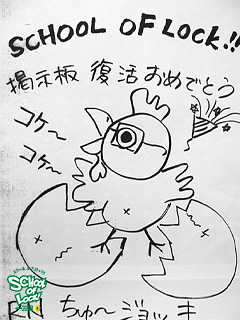 SCHOOL OF LOCK!!
掲示板 復活おめでとう
コケ〜
コケ〜
SCHOOL
OF
LOCK!
RN ちゅ〜ジョッキ